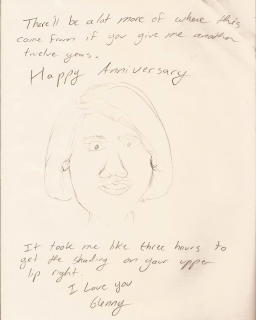 There'll be a lot more of where this
came from if you give me another
twelve years.
Happy Anniversary
It took me like three hours to
get the shading on your upper
lip right.
I Love you
Glenny